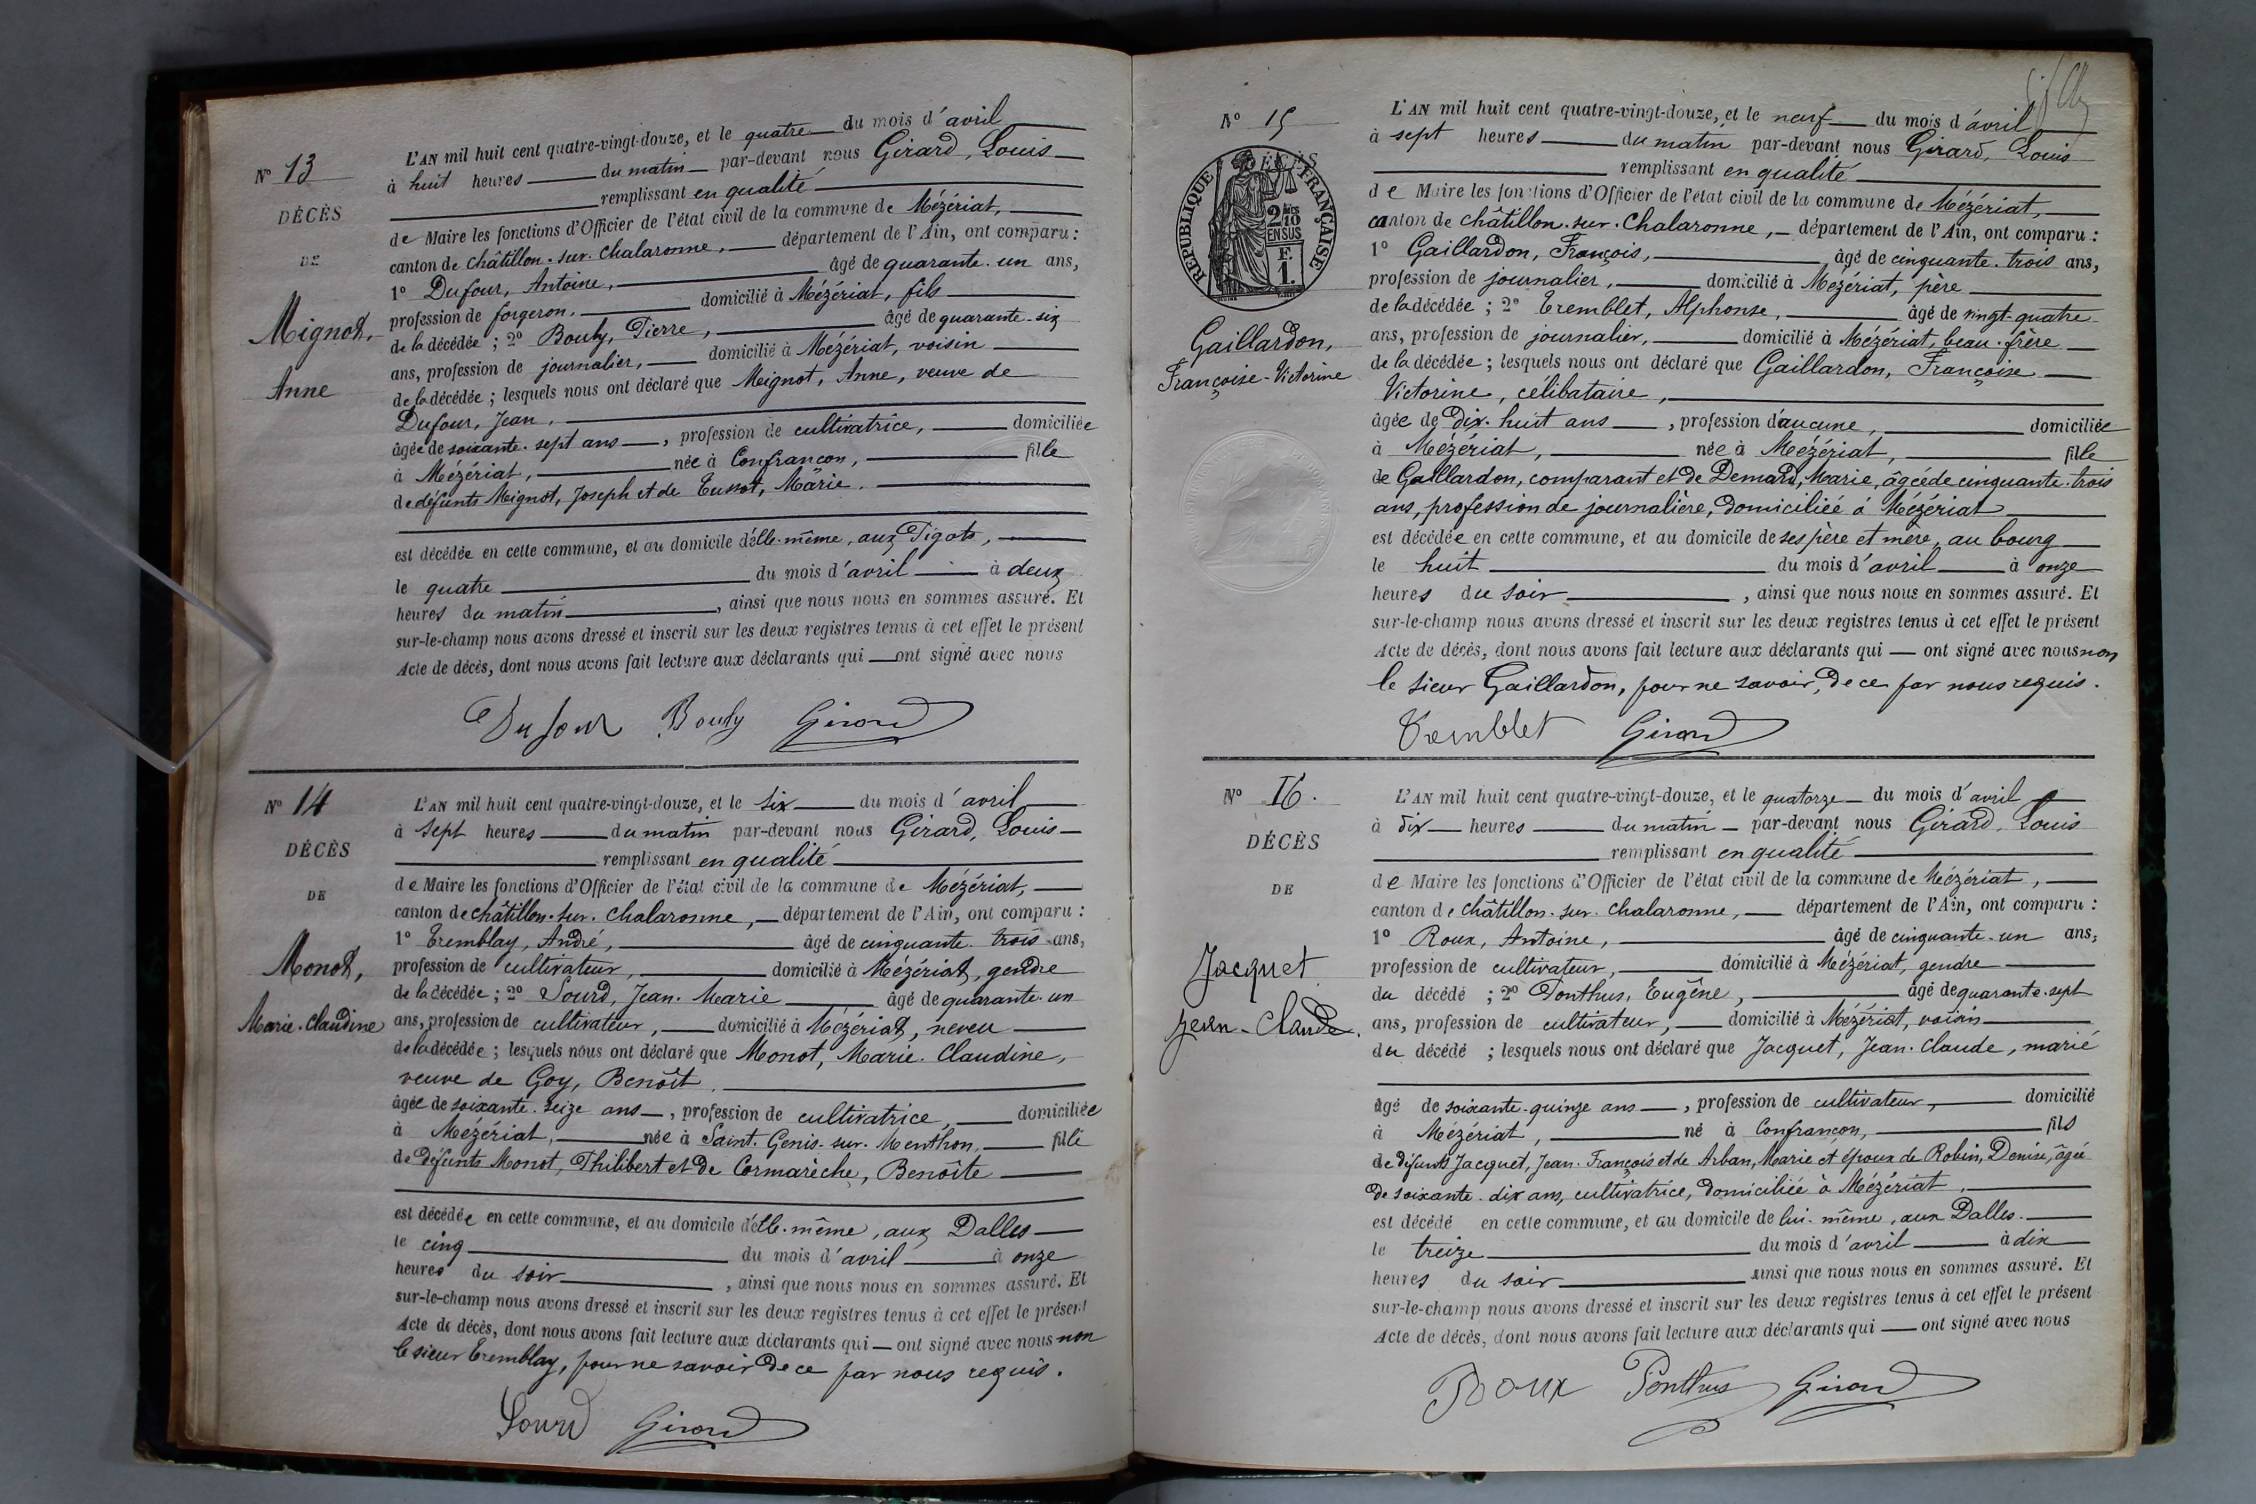 N° 13
DÉCÈS
DE
Mignot,
Anne
L'AN mil huit cent quatre-vingt-douze, et le quatre du mois d'avril
à huit heures du matin par-devant nous Girard, Louis
remplissant en qualité
de Maire les fonctions d'Officier de l'état civil de la commune de Mézériat,
canton de Châtillon-sur-Chalaronne, département de l'Ain, ont comparu :
1° Dufour, Antoine, âgé de quarante-un ans,
profession de forgeron, domicilié à Mézériat, fils
de la décédée ; 2° Bouly, Pierre, âgé de quarante-six
ans, profession de journalier, domicilié à Mézériat, voisin
de la décédée ; lesquels nous ont déclaré que Mignot, Anne, veuve de
Dufour, Jean,
âgée de soixante-sept ans, profession de cultivatrice, domiciliée
à Mézériat, née à Confrançon, fille
de défunts Mignot, Joseph et de Tussot, Marie.
est décédée en cette commune, et au domicile d'elle-même, aux Pigots,
le quatre du mois d'avril à deux
heures du matin, ainsi que nous nous en sommes assuré. Et
sur-le-champ nous avons dressé et inscrit sur les deux registres tenus à cet effet le présent
Acte de décès, dont nous avons fait lecture aux déclarants qui ont signé avec nous
Dufour Bouly Girard
N° 14
DÉCÈS
DE
Monot,
Marie-Claudine
L'AN mil huit cent quatre-vingt-douze, et le six du mois d'avril
à sept heures du matin par-devant nous Girard, Louis
remplissant en qualité
de Maire les fonctions d'Officier de l'état civil de la commune de Mézériat,
canton de Châtillon-sur-Chalaronne, département de l'Ain, ont comparu :
1° Tremblay, André, âgé de cinquante-trois ans,
profession de cultivateur, domicilié à Mézériat, gendre
de la décédée ; 2° Sourd, Jean-Marie âgé de quarante-un
ans, profession de cultivateur, domicilié à Mézériat, neveu
de la décédée ; lesquels nous ont déclaré que Monot, Marie-Claudine,
veuve de Goy, Benoît.
âgée de soixante-seize ans, profession de cultivatrice, domiciliée
à Mézériat, née à Saint-Genis-sur-Menthon, fille
de défunts Monot, Philibert et de Cormarèche, Benoîte
est décédée en cette commune, et au domicile d'elle-même, aux Dalles
le cinq du mois d'avril à onze
heures du soir, ainsi que nous nous en sommes assuré. Et
sur-le-champ nous avons dressé et inscrit sur les deux registres tenus à cet effet le présent
Acte de décès, dont nous avons fait lecture aux déclarants qui ont signé avec nous non
le sieur Tremblay, pour ne savoir de ce par nous requis.
Sourd Girard
N° 15
DÉCÈS
RÉPUBLIQUE FRANÇAISE
2 10 EN SUS
F. 1.
Gaillardon,
Françoise-Victorine
L'AN mil huit cent quatre-vingt-douze, et le neuf du mois d'avril
à sept heures du matin par-devant nous Girard, Louis
remplissant en qualité
de Maire les fonctions d'Officier de l'état civil de la commune de Mézériat,
canton de Châtillon-sur-Chalaronne, département de l'Ain, ont comparu :
1° Gaillardon, François, âgé de cinquante-trois ans,
profession de journalier, domicilié à Mézériat, père
de la décédée ; 2° Tremblet, Alphonse, âgé de vingt-quatre
ans, profession de journalier, domicilié à Mézériat, beau-frère
de la décédée ; lesquels nous ont déclaré que Gaillardon, Françoise
Victorine, célibataire,
âgée de dix-huit ans, profession d'aucune, domiciliée
à Mézériat, née à Mézériat, fille
de Gaillardon, comparant et de Demard, Marie, âgée de cinquante-trois
ans, profession de journalière, domiciliée à Mézériat
est décédée en cette commune, et au domicile de ses père et mère, au bourg
le huit du mois d'avril à onze
heures du soir, ainsi que nous nous en sommes assuré. Et
sur-le-champ nous avons dressé et inscrit sur les deux registres tenus à cet effet le présent
Acte de décès, dont nous avons fait lecture aux déclarants qui ont signé avec nous non
le sieur Gaillardon, pour ne savoir, de ce par nous requis.
Tremblet Girard
N° 16.
DÉCÈS
DE
Jacquet
Jean-Claude.
L'AN mil huit cent quatre-vingt-douze, et le quatorze du mois d'avril
à dix heures du matin par-devant nous Girard, Louis
remplissant en qualité
de Maire les fonctions d'Officier de l'état civil de la commune de Mézériat,
canton de Châtillon-sur-Chalaronne, département de l'Ain, ont comparu :
1° Roux, Antoine, âgé de cinquante-un ans,
profession de cultivateur, domicilié à Mézériat, gendre
du décédé ; 2° Ponthus, Eugène, âgé de quarante-sept
ans, profession de cultivateur, domicilié à Mézériat, voisin
du décédé ; lesquels nous ont déclaré que Jacquet, Jean-Claude, marié
âgé de soixante-quinze ans, profession de cultivateur, domicilié
à Mézériat, né à Confrançon, fils
de défunts Jacquet, Jean-François et de Arban, Marie et époux de Robin, Denise, âgée
de soixante-dix ans, cultivatrice, domiciliée à Mézériat.
est décédé en cette commune, et au domicile de lui-même, aux Dalles.
le treize du mois d'avril à dix
heures du soir ainsi que nous nous en sommes assuré. Et
sur-le-champ nous avons dressé et inscrit sur les deux registres tenus à cet effet le présent
Acte de décès, dont nous avons fait lecture aux déclarants qui ont signé avec nous
Roux Ponthus Girard